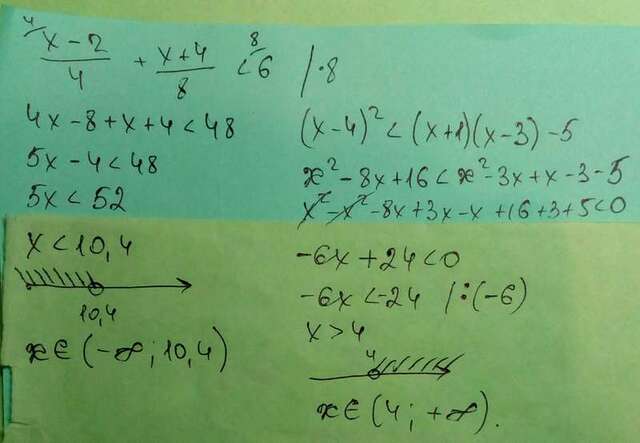 4/ x-2/4 + x+4/8 < 6 8/ | ·8
4x-8+x+4<48
5x-4<48
5x<52
x<10,4
10,4
x∈(-∞;10,4)
(x-4)²<(x+1)(x-3)-5
x²-8x+16<x²-3x+x-3-5
x²-x²-8x+3x-x+16+3+5<0
-6x+24<0
-6x<-24 |:(-6)
x>4
4
x∈(4;+∞).